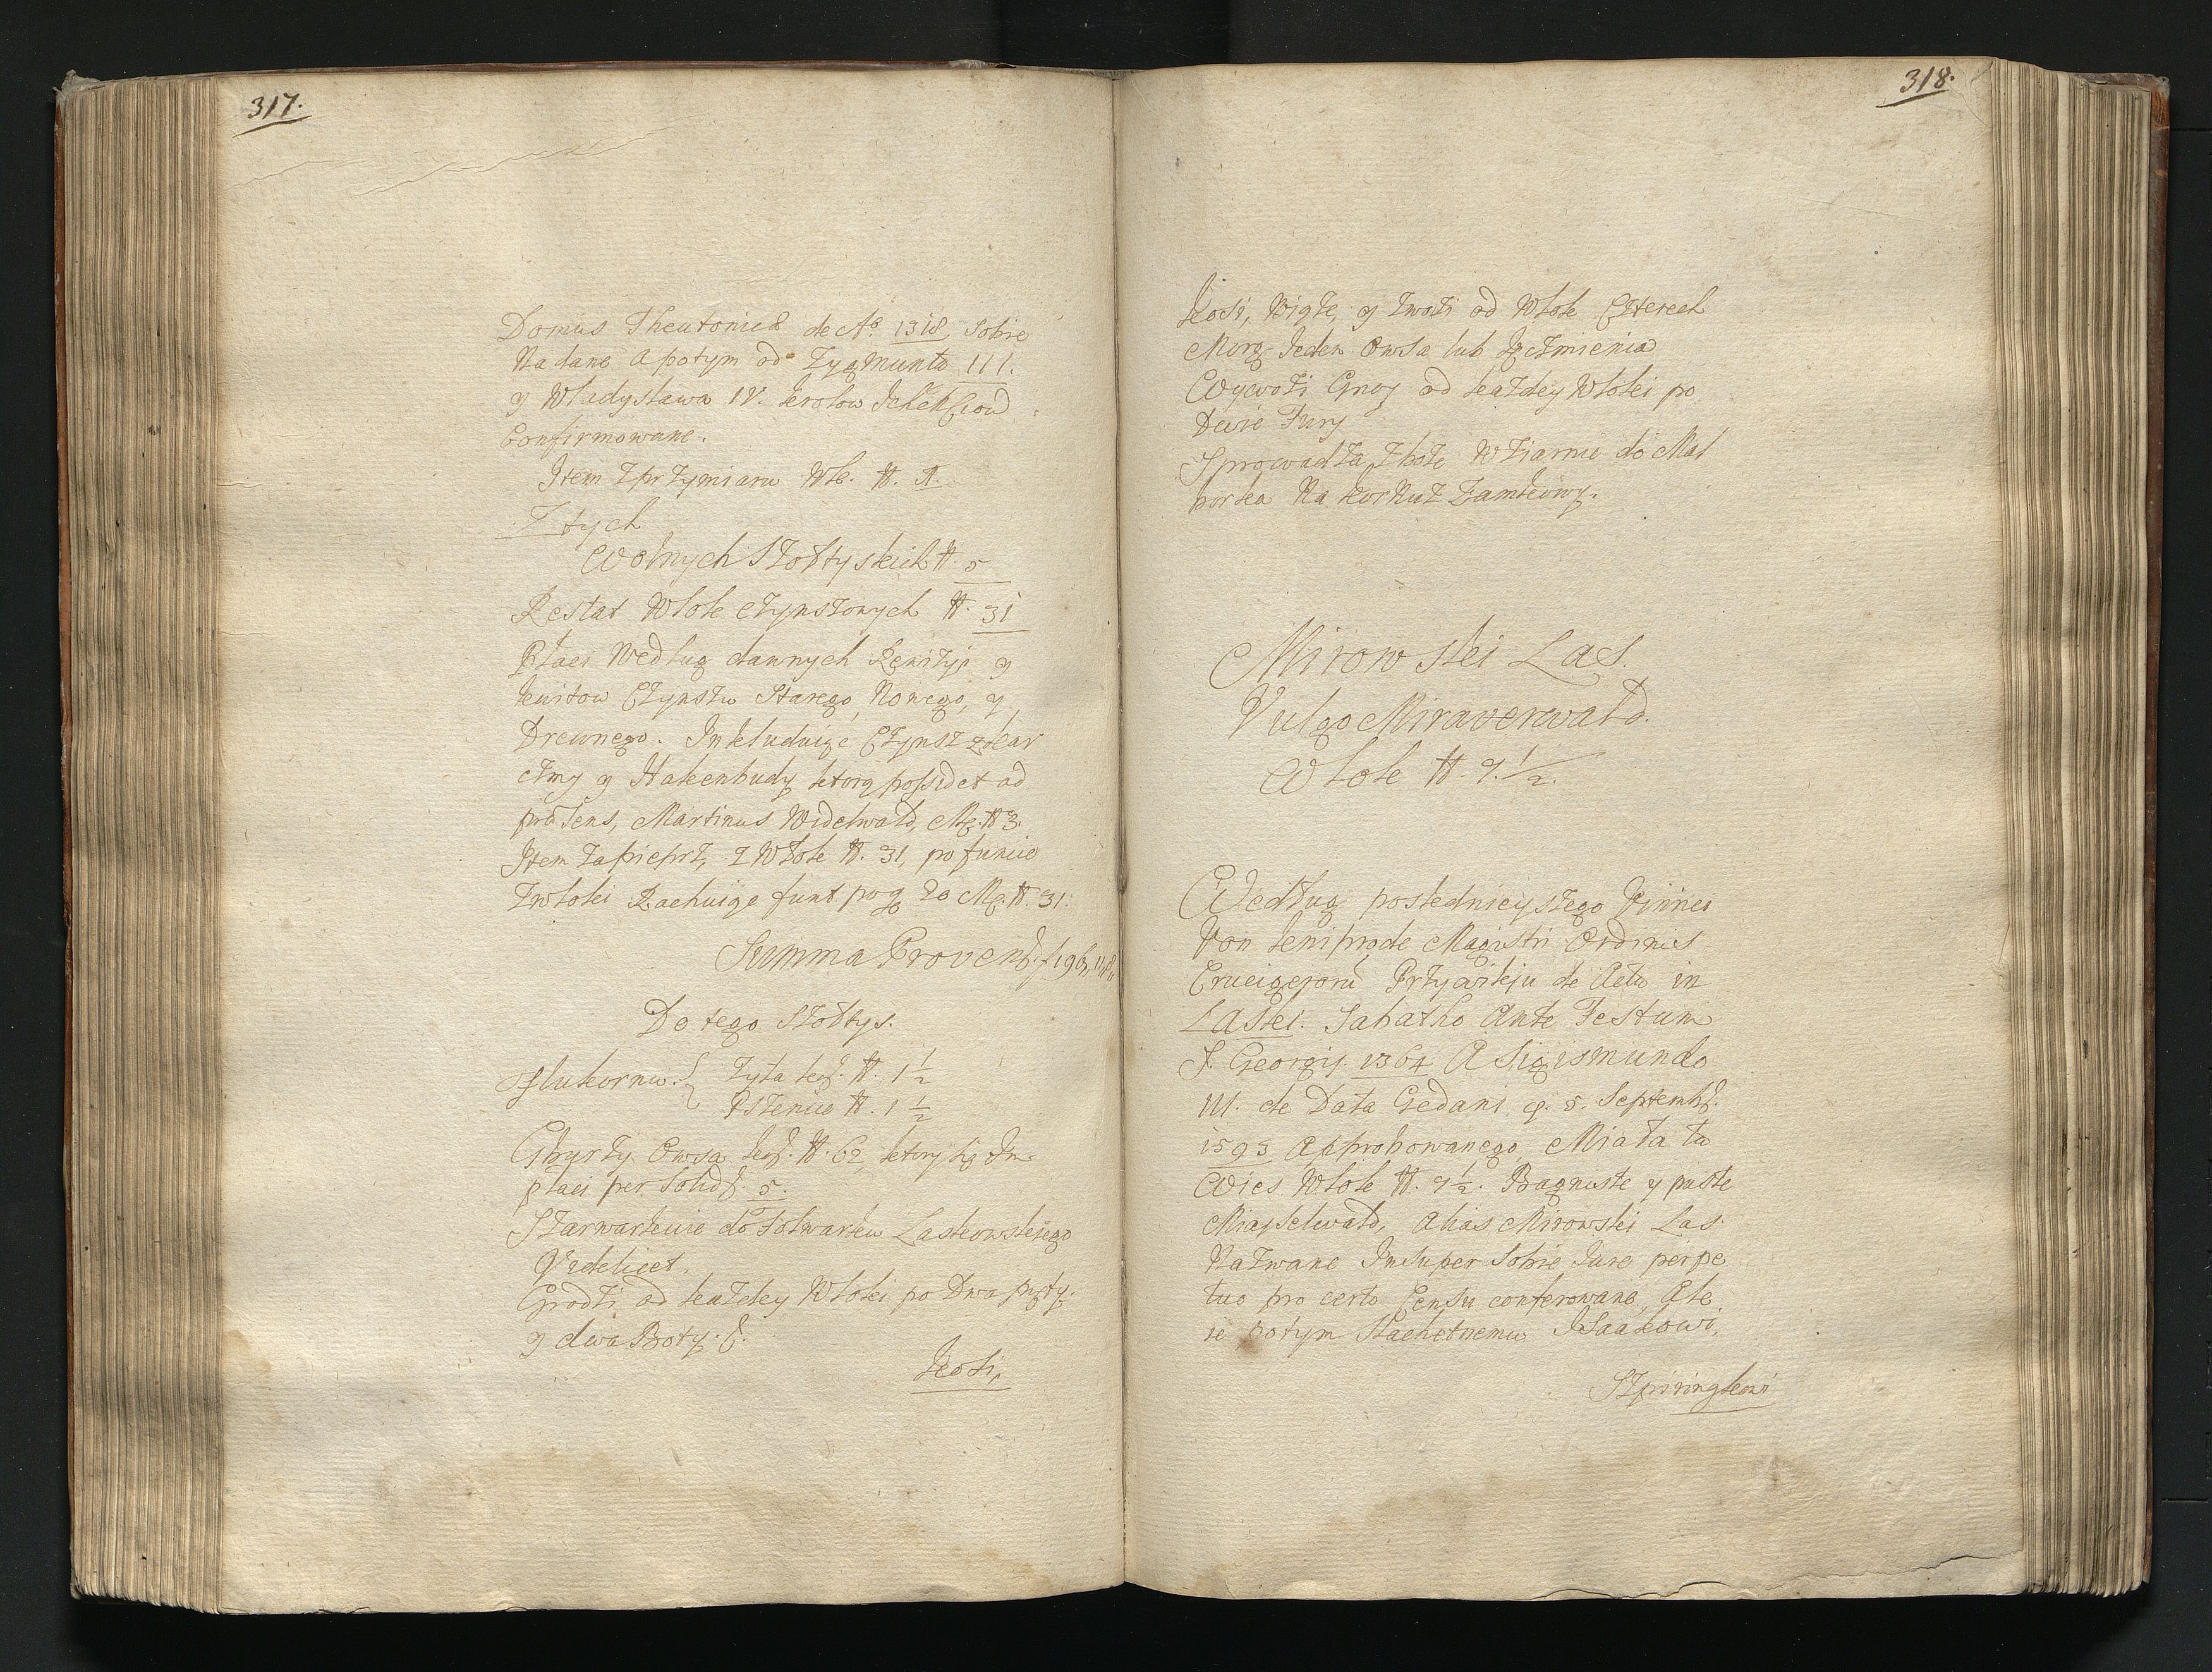 317.
Domus Theutonicæ de Aº 1318 Sobie
Nadane a potym od Zygmunta III.
y Władysława IV. Krolow Ichmciow
Confirmowane.
Item z przymiaru Wł. №. 1.
Z tych
Wolnych Szołtyskich №. 5
Restat Włok czynszowych №. 31
Płaci według dawnych Rewizji y
kwitow Czynszu Starego, Nowego, y
Drewnego. Inkluduiąc Czynsz z kar
czmy y Hakenbudy ktorą possidet ad
præsens, Martinus Widelwald, Mg. № 3.
Item za pieprz, z Włok №. 31, po funcie
z włoki Rachuiąc funt po g 20 Mg. №. 31.
Summa Provent. f 196,
Do tego Szołtys.
Płukornu. Zyta kor. №. 1½
Pszenice №. 1½
Gburzy Owsa kor. №. 62, ktory się In
płaci per Solid. 5.
Szarwarkuie do Folwarku Laskowskiego
Videlicet.
Grodzi od każdey Włoki po Dwa pręty.
y dwa Płoty.
Kosi,
318.
Kosi, Wiąże, y zwozi od Włok Czterech
Morg Jeden Owsa lub Jęczmienia
Wywozi Gnoy od każdey Włoki po
Dwie Fury
Sprowadza Zboże w Ziarnie do Mal
borka Na kornuz Zamkowy.
Mirowski Las.
Vulgo Miraverwald.
Włok №. 7. ½.
Według poslednieyszego Vinnei
Von Kniprode Magistri Ordinis
Crucigerorũ Przywileju de Actu in
Laskei. Sabatho Ante Festum
S. Georgij. 1364 A Sigismundo
III. de Data Gedani, d. 5. Septembr.
1593 Approbowanego, Miała ta
Wies Włok №. 7½. Bagniste y puste
Alias Mirowski Las
Nazwane Insuper Sobie Jure perpe
tuo pro certo Censu conferowane, Ale
ie potym Szachetnemu Isaakowi,
Szpiringkowi